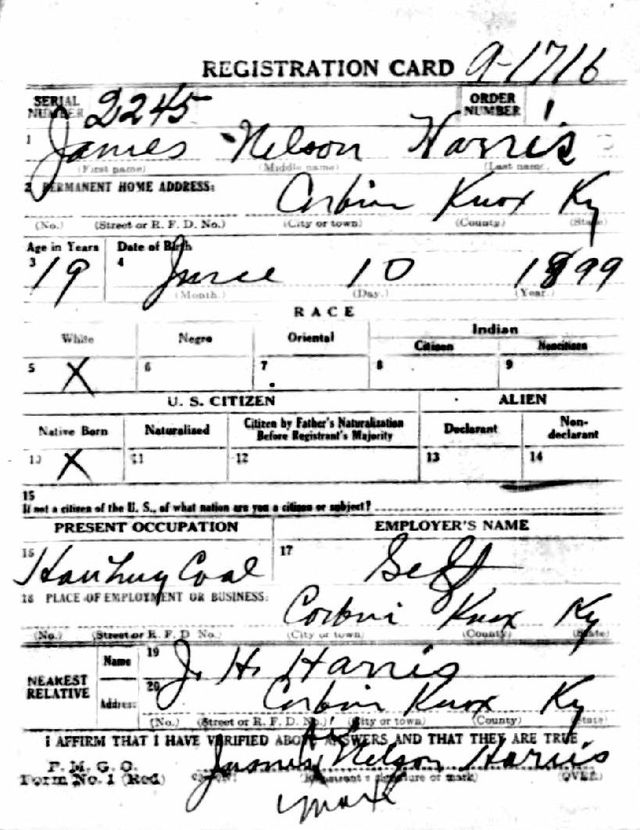 REGISTRATION CARD 9-1716
SERIAL NUMBER 2245 ORDER NUMBER
1 James Nelson Harris
(First name) (Middle name) (Last name)
2 PERMANENT HOME ADDRESS: Corbin Knox Ky
(No.) (Street or R. F. D. No.) (City or town) (County) (State)
Age in Years Date of Birth
3 19 4 June 10 1899
(Month.) (Day.) (Year.)
RACE
White Negro Oriental Indian
Citizen Noncitizen
5 X 6 7 8 9
U. S. CITIZEN ALIEN
Native Born Naturalized Citizen by Father's Naturalization Before Registrant's Majority Declarant Non-declarant
10 X 11 12 13 14
15
If not a citizen of the U. S., of what nation are you a citizen or subject?
PRESENT OCCUPATION EMPLOYER'S NAME
16 Hauling Coal 17 Self
18 PLACE OF EMPLOYMENT OR BUSINESS: Corbin Knox Ky
(No.) (Street or R. F. D. No.) (City or town) (County) (State)
NEAREST RELATIVE Name 19 J. H. Harris
Address 20 Corbin Knox Ky
(No.) (Street or R. F. D. No.) (City or town) (County) (State)
I AFFIRM THAT I HAVE VERIFIED ABOVE ANSWERS AND THAT THEY ARE TRUE
P. M. G. O.
Form No. 1 (Red) James his X Nelson Harris
(Registrant's signature or mark) (OVER)
mark